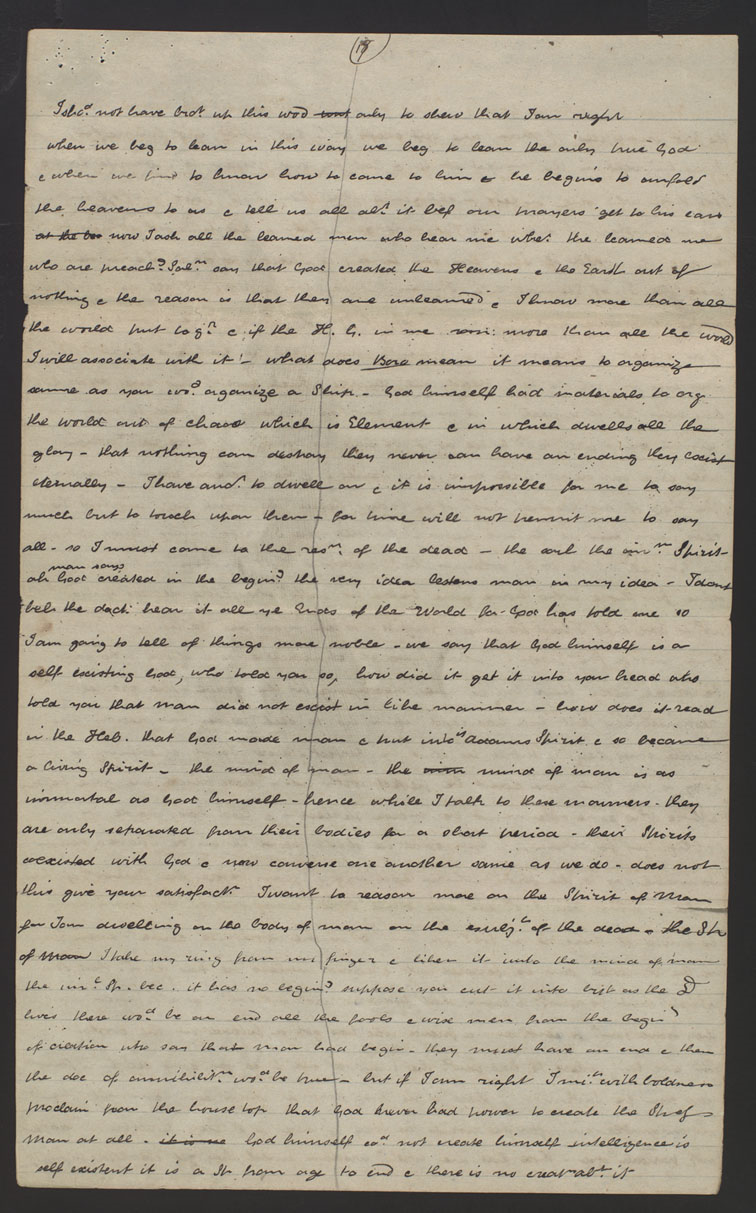 19
I sho.d not have bro.t up this word only to shew that I am right
when we beg to learn in this way we beg to learn the only true God
& when we find to know how to come to him & he begins to unfold
the heavens to us & tell us all ab.t it bef our prayers get to his ears
at the be now I ask all the learned men who hear me whe.r the learned me
who are preach.g Sal.n say that God created the Heavens & the Earth out of
nothing & the reason is that they are unlearned & I know more than all
the world put tog.r & if the H. G. in me more than all the world
I will associate with it! – what does Bara mean it means to organize
same as you wo.d organize a Ship. – God himself had materials to org
the world out of chaos which is Element & in which dwells all the
glory – that nothing can destroy they never can have an ending they coexist
eternally – I have ano.r to dwell on & it is impossible for me to say
much but to touch upon them – for time will not permit me to say
all – so I must come to the res.n of the dead – the soul the im.m Spirit –
man says
God created in the begin.g the very idea lessens man in my idea – I dont
bel: the doct: hear it all ye Ends of the World for God has told me so
I am going to tell of things more noble – we say that God himself is a
self existing God, who told you so, how did it get it into your head who
told you that man did not exist in like manner – how does it read
in the Heb. that God made man & put into it Adams Spirit & so became
a living Spirit – the mind of man – the mind of man is as
immortal as God himself – hence while I talk to these mourners – they
are only separated from their bodies for a short period – their Spirits
coexisted with God & now converse one another same as we do – does not
this give your satisfact.n I want to reason more on the Spirit of Man
for I am dwelling on the body of man on the subj.t of the dead – the Sp
of Man I take my ring from my finger & liken it unto the mind of man
the im.l Sp. bec. it has no begin.g suppose you cut it into but as the D
lives there wo.d be an end all the fools & wise men from the begin.g
of creation who say that man had begin – they must have an end & then
the doc of annihilit.n wo.d be true – but if I am right I mi.t with boldness
proclaim from the house top that God never had power to create the Sp of
Man at all – it is ne God himself co.d not create himself – intelligence is
self existent it is a Sp from age to end & there is no creat.n ab.t it